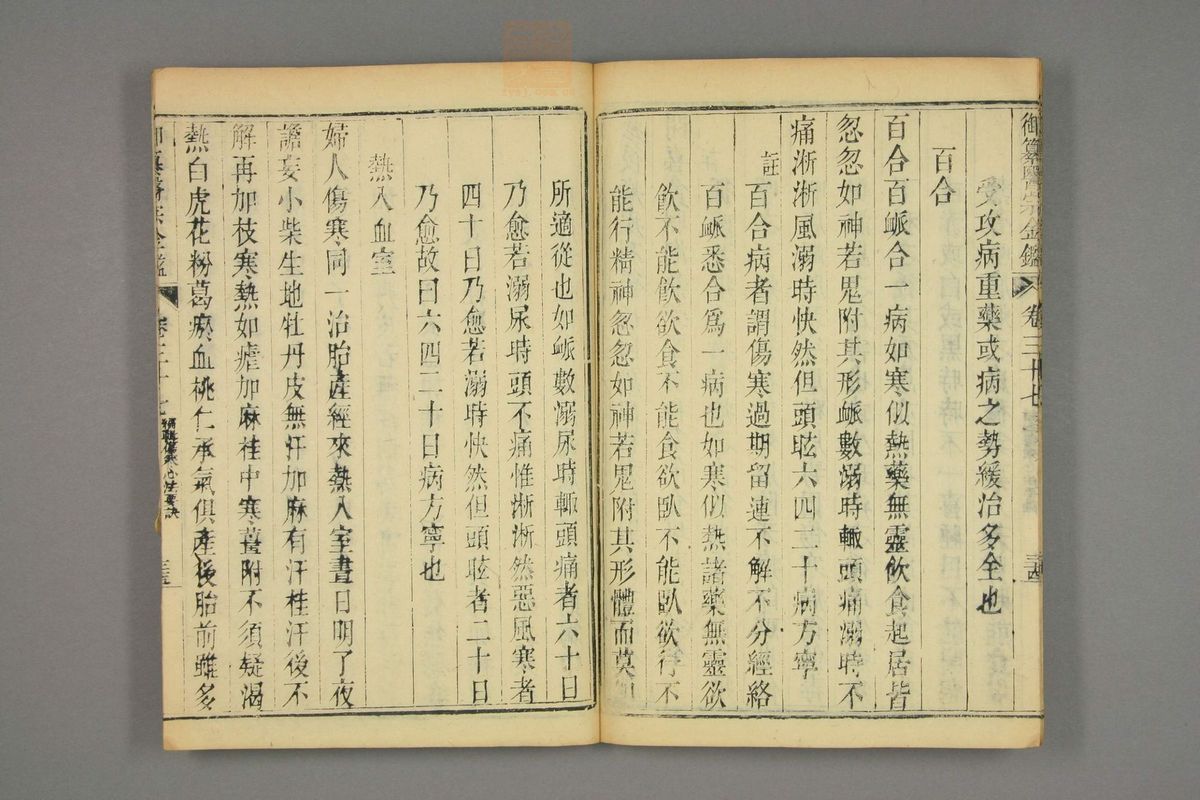 御纂醫宗金鑑 卷三十七
受攻病重藥或病之勢緩治多全也
百合
百合百脈合一病如寒似熱藥無靈飲食起居皆
忽忽如神若鬼附其形脈數溺時輙頭痛溺時不
痛淅淅風溺時快然但頭眩六四二十病方寧
註
百合病者謂傷寒過期留連不解不分經絡
百脈悉合爲一病也如寒似熱諸藥無靈欲
飮不能飮欲食不能食欲臥不能臥欲行不
能行精神忽忽如神若鬼附其形體而莫知
所適從也如脈數溺尿時輙頭痛者六十日
乃愈若溺尿時頭不痛惟淅淅然惡風寒者
四十日乃愈若溺時快然但頭眩者二十日
乃愈故曰六四二十日病方寧也
熱入血室
婦人傷寒同一治胎產經來熱入室晝日明了夜
譫妄小柴生地牡丹皮無汗加麻有汗桂汗後不
解再加枝寒熱如瘧加麻桂中寒薑附不須疑渴
熱白虎花粉葛瘀血桃仁承氣俱產後胎前雖多
御纂醫宗金鑑 卷三十七